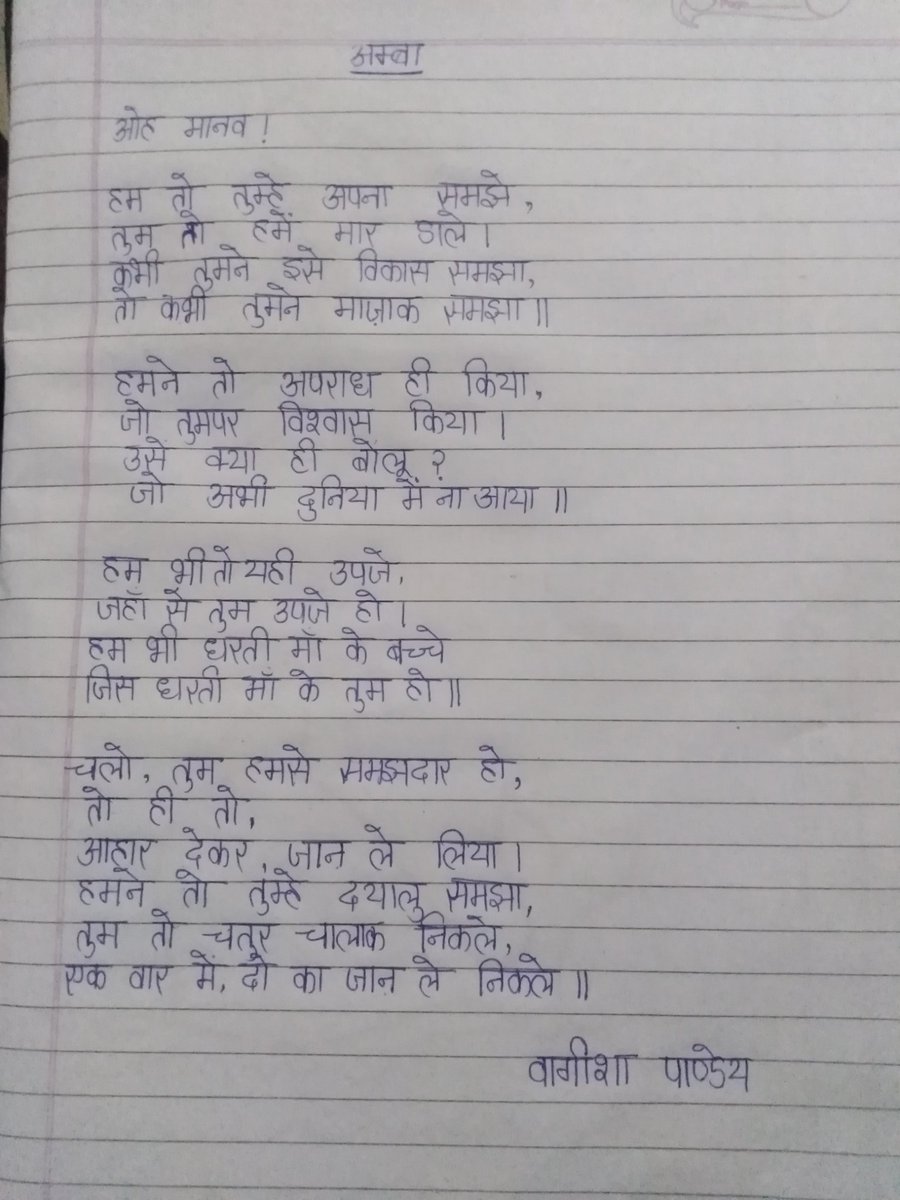 अम्बा
ओह मानव!
हम तो तुम्हे अपना समझे,
तुम तो हमें मार डाले।
कभी तुमने इसे विकास समझा,
तो कभी तुमने माज़ाक समझा॥
हमने तो अपराध ही किया,
जो तुमपर विश्वास किया।
उसे क्या ही बोलू?
जो अभी दुनिया में ना आया॥
हम भी तो यही उपजे,
जहाँ से तुम उपजे हो।
हम भी धरती माँ के बच्चे
जिस धरती माँ के तुम हो॥
चलो, तुम हमसे समझदार हो,
तो ही तो,
आहार देकर, जान ले लिया।
हमने तो तुम्हे दयालु समझा,
तुम तो चतुर चालाक निकले,
एक वार में, दो का जान ले निकले॥
वागीशा पाण्डेय